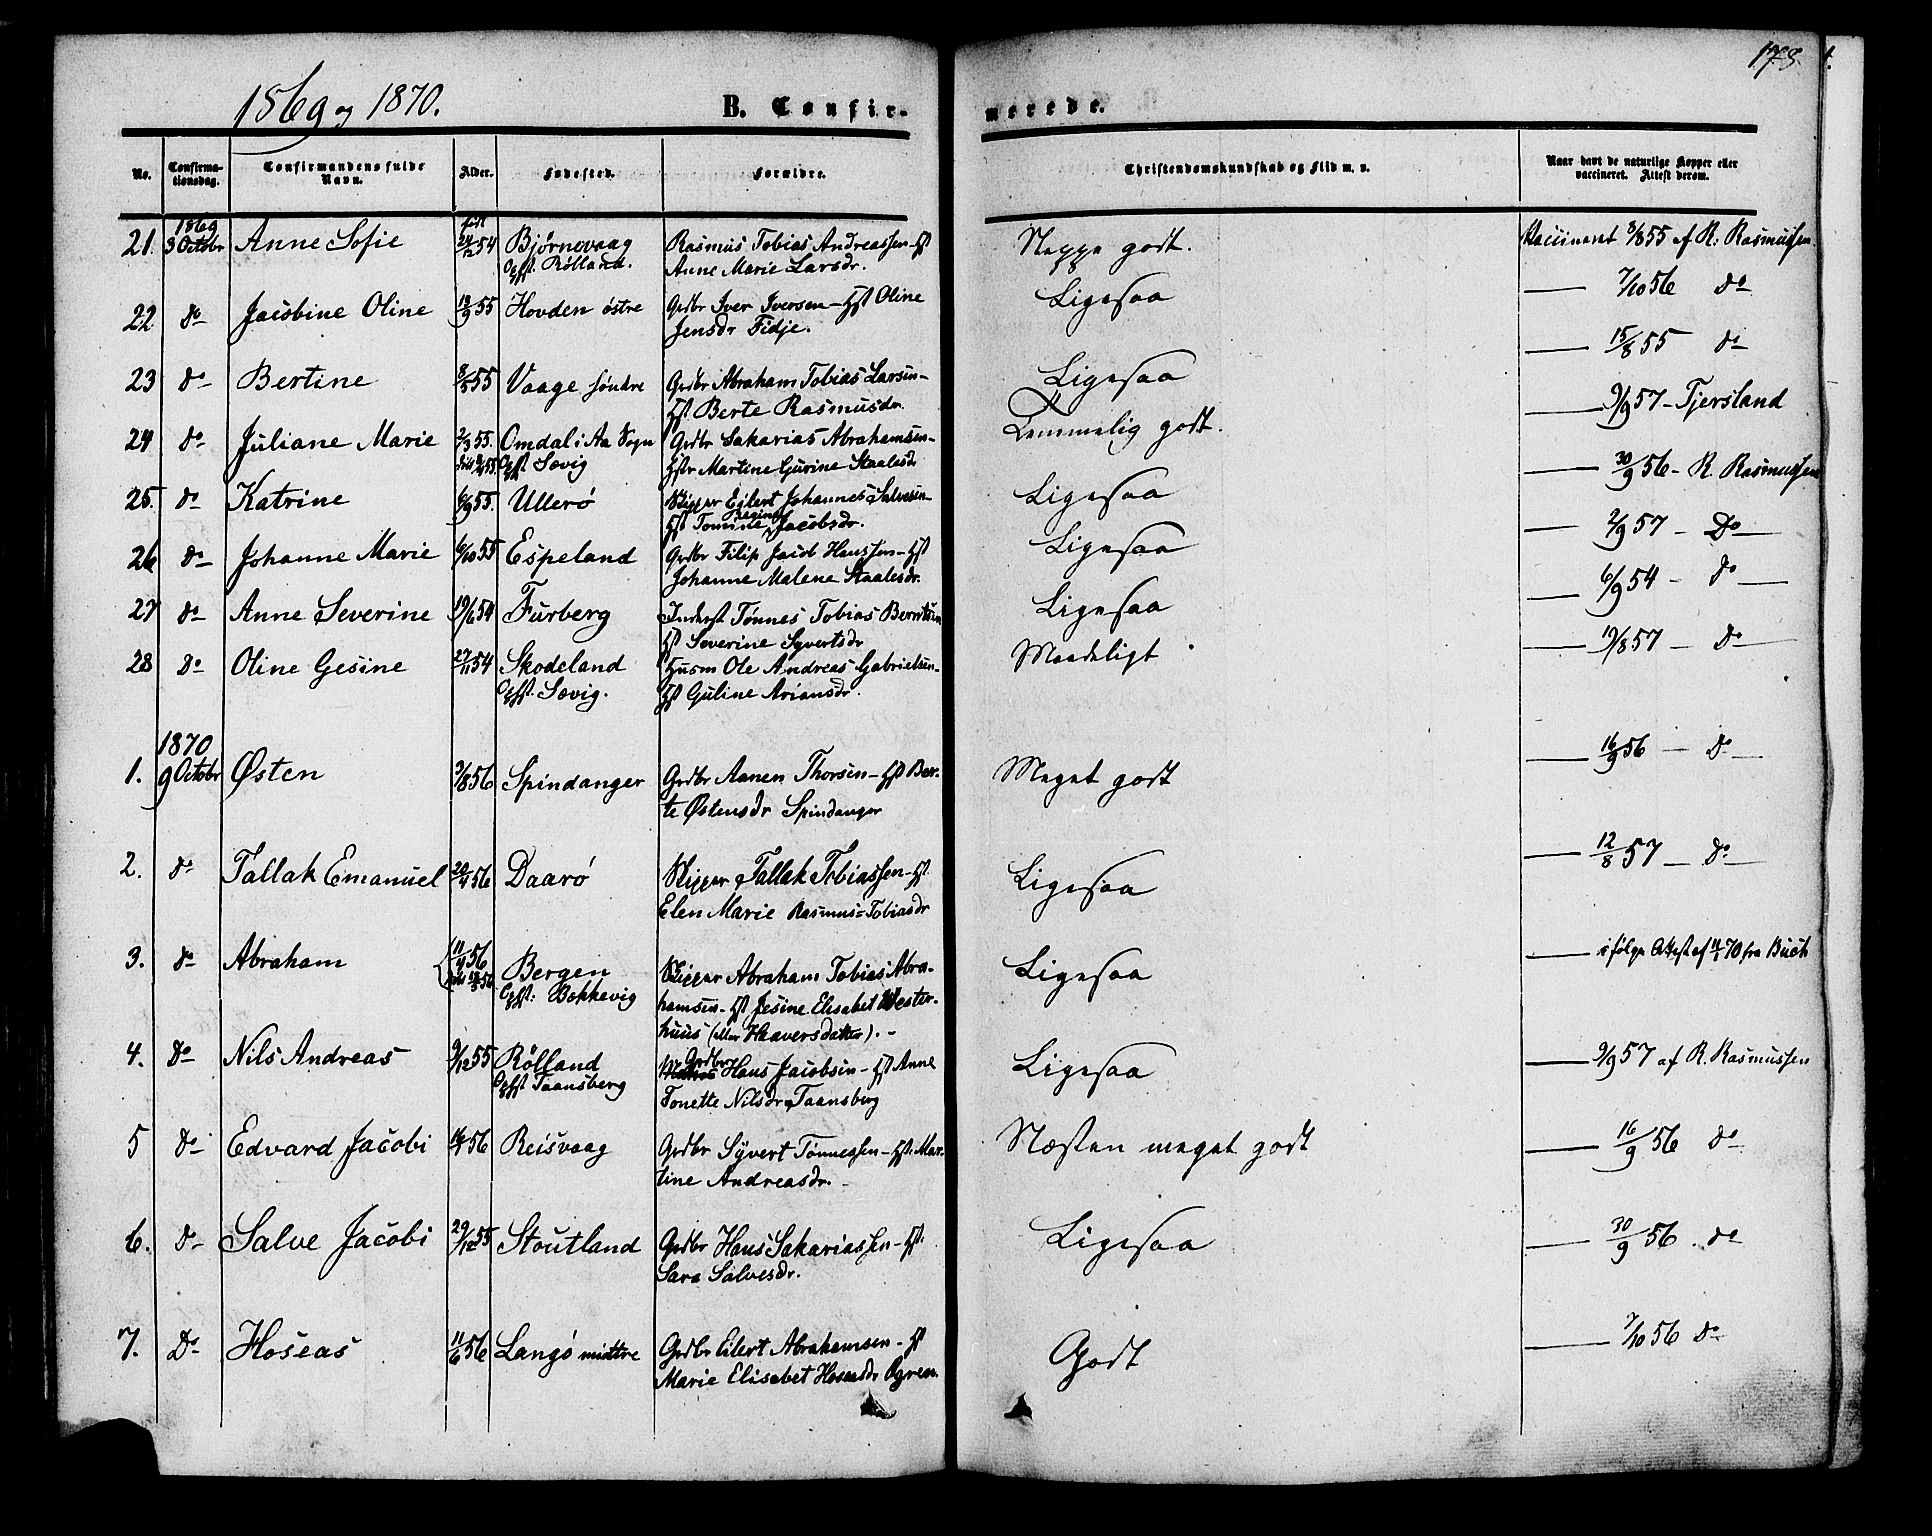 1869 og 1870. B. Confir- merede. 173.
No. Confirma- tionsdag. Confirmandens fulde Navn. Alder. Fødested. Forældre. Christendomskundskab og Flid m. v. Naar havt de naturlige Kopper eller vaccineret. Attest derom.
1869 født
21. 3 Octobr Anne Sofie 24/12 54 Bjørnevaag Rasmus Tobias Andreassen - Hst Neppe godt. Vaccineret 3/8 55 af R. Rasmussen
Opfst. Rølland. Anne Marie Larsdr.
22 do Jacobine Oline 13/9 55 Hovden østre Grdbr Iver Iversen - Hst Oline Ligesaa — 7/10 56 do
Jensdr Fidje.
23 do Bertine 8/5 55 Vaage søndre Grdbr Abraham Tobias Larsen - Ligesaa — 15/8 55 do
Hst. Berte Rasmusdr.
24 do Juliane Marie 2/3 55. Omdal i Aa Sogn Grdbr Sakarias Abrahamsen - Temmelig godt. — 9/9 57 - Tjersland
Opfst Sævig Hstr Martine Gurine Staalesdr
25. do Katrine 6/9 55. Ullerø Skipper Eilert Johannes Salvesen - Ligesaa — 30/9 56 - R. Rasmussen
Hst Tomine Regine Jacobsdr.
26 do Johanne Marie 6/10 55 Espeland Grdbr Filip Jacob Hanssen - Hst Ligesaa — 2/9 57 - Do
Johanne Malene Staalesdr.
27 do Anne Severine 19/6 54 Furberg Inderst Tønnes Tobias Berntsen Ligesaa — 6/9 54 - do
Hst Severine Syvertsdr
28 do Oline Gesine 27/11 54 Skodeland Husm Ole Andreas Gabrielsen - Maadeligt — 19/8 57 - do
Opfst. Sævig. Hst Guline Ariansdr.
1870
1. 9 Octobr Østen 3/8 56 Spindanger Grdbr Aanen Thorsen - Hst Ber- Meget godt — 16/9 56 - do
te Østensdr Spindanger
2. do Tallak Emanuel 20/4 56 Daarø Skipper Tallak Tobiassen - Hst. Ligesaa — 12/8 57 - do
Elen Marie Rasmus=Tobiasdr
3. do Abraham 11/4 56 Bergen Skipper Abraham Tobias Abra- Ligesaa — ifølge Attest af 11/5 70 fra Buch
Opfst: Bokkevig hamsen - Hst Jesine Elisabet Wester-
huus (eller Haaversdatter). -
4. Do Nils Andreas 9/12 55 Rølland Grdbr Hans Jacobsen - Hst Anne Ligesaa — 9/9 57 af R. Rasmussen
Opfst Taansberg Tonette Nilsdr Taansberg
5 Do Edvard Jacobi 14/4 56 Reisvaag Grdbr Syvert Tønnessen - Hst. Mar- Næsten meget godt — 16/9 56 do
tine Andreasdr. -
6. do Salve Jacobi 29/12 55 Stoutland Grdbr Hans Sakariassen - Hst. Ligesaa — 30/9 56. do
Sara Salvesdr.
7. Do Hoseas 11/6 56 Langø midtre Grdbr Eilert Abrahamsen - Hst Godt — 7/10 56 do
Marie Elisabet Hoseasdr Ogren.